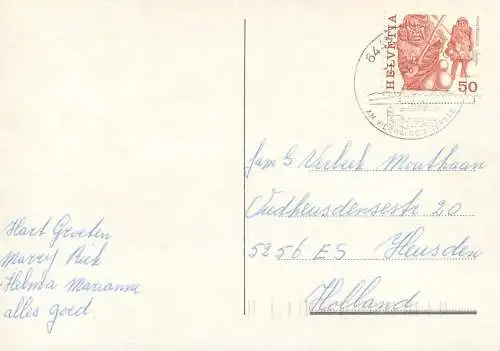 HELVETIA
50
644
AM VIERWALDSTÄTTERSEE
fam G Verbeek Mouthaan
Oudheusdensestr 20
5256 ES Heusden
Holland
Hart Groeten
Marry Riek
Helma Marianne
alles goed.